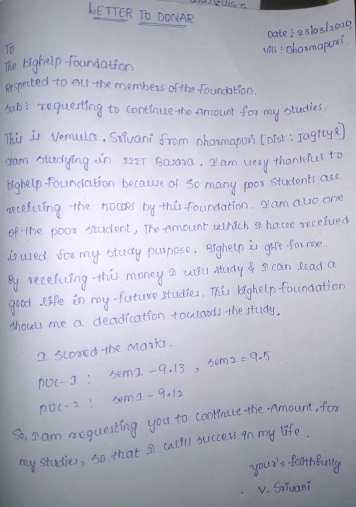 LETTER TO DONAR
Date : 23/03/2020
Vill : Dharmapuri.
To
The bighelp foundation
Respected to All the members of the Foundation.
Sub : requesting to continue the Amount for my studies.
This is Vemula. Srivani from Dharmapuri [Dist : Jagityal]
I am studying in IIIT Basara. I am very thankful to
bighelp Foundation because of so many poor students are
receiving the by this foundation. I am also one
of the poor student, The amount which I have received
is used for my study purpose. Bighelp is gift for me.
By receiving this money I will study & I can lead a
good life in my future studies. This bighelp foundation
shows me a deadication towards the study.
I scored the Marks.
PUC-1 : Sem1 - 9.13 , Sem2 = 9.5
PUC-2 : Sem1 - 9.12
So, I am requesting you to continue the Amount, for
my studies, so that I will success in my life.
your's faithfully
V. Srivani